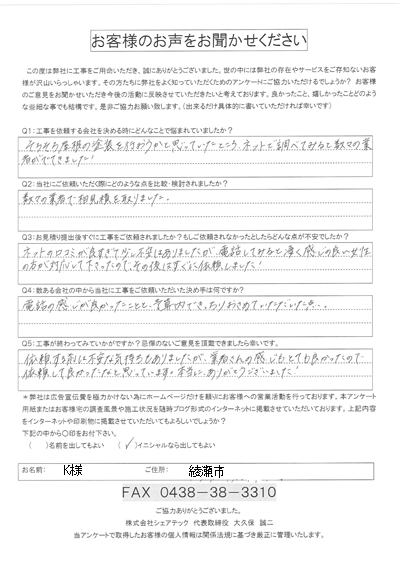 お客様のお声をお聞かせください
この度は弊社に工事をご用命いただき、誠にありがとうございました。世の中には弊社の存在やサービスをご存知ないお客様が沢山いらっしゃいます。その方たちに弊社をよく知っていただくためのアンケートにご協力いただけるでしょうか?お客様
のご意見をお聞かせいただき今後の活動に反映させていただきたいと考えております。良かったこと、嬉しかったことどのよ
うな些細な事でも結構です。是非ご協力お願い致します。(出来るだけ具体的に書いていただければ幸いです)
Q1:工事を依頼する会社を決める時にどんなことで悩まれていましたか?
そろそろ屋根の塗装を行おうかと思っていたところ、ネットで調べてみると数々の業
者がでてきました!
Q2:当社にご依頼いただく際にどのような点を比較・検討されましたか?
数々の業者で相見積を取りました。
Q3:お見積り提出後すぐに工事をご依頼されましたか?もしご依頼されなかったとしたらどんな点が不安でしたか?
ネットの口コミが良すぎて少し不安もありましたが、電話してみると凄く感じの良い女性
の方が対応して下さったので、その後はすぐに依頼しました!
Q4:数ある会社の中から当社に工事をご依頼いただいた決め手は何ですか?
電話の感じが良かったことと、予算内できっちりおさめていただいた点、、
Q5:工事が終わってみていかがですか?忌憚のないご意見を頂戴できましたら幸いです。
依頼する前に不安な気持ちもありましたが、業者さんの感じもとても良かったので
依頼して良かったなと思っています。本当に、ありがとうございました!
*弊社は広告宣伝費を極力かけない為にホームページだけを頼りにお客様への営業活動を行っております。本アンケート
用紙またはお客様宅の調査風景や施工状況を随時ブログ形式のインターネットに掲載させていただいております。上記内容
をインターネットや印刷物に掲載させていただいてもよろしいでしょうか?
下記の中から○印をお付下さい。
( )名前を出してもよい (✓)イニシャルなら出してもよい
お名前: K様 ご住所: 綾瀬市
FAX 0438-38-3310
ご協力ありがとうございました。
株式会社シェアテック 代表取締役 大久保 誠二
当アンケートで取得したお客様の個人情報は関係法規に基づき厳正に管理いたします。